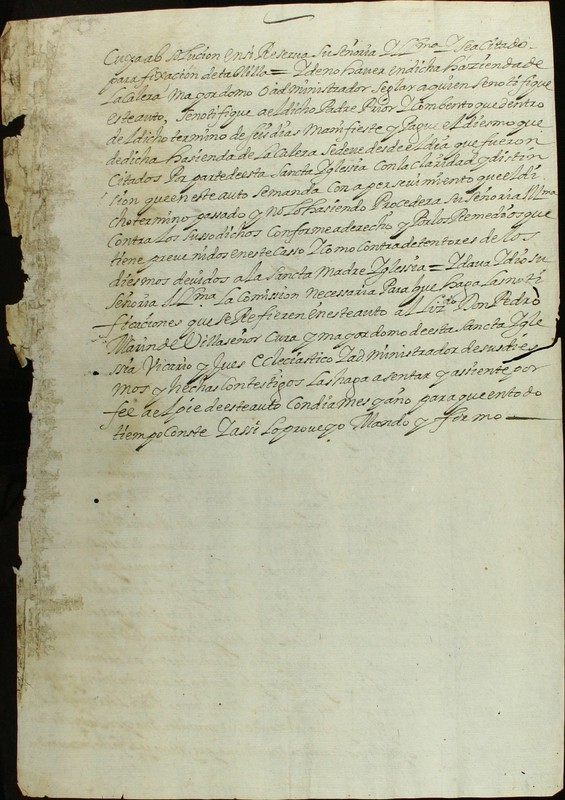 Cuya absolucion en si Reserva Su señoria Yllma Y sea Citado
para fixación de tablilla = Y de no haver en dicha házienda de
la Calera Mayordomo o administrador Seglar a quien se notifique
este auto, Se notifique a el dicho Padre Prior Y Combento que dentro
de el dicho termino de seis dias Manifieste y Pague el diesmo que
de dicha Hasienda de La Calera Se deve desde el dia que fueron
Citados Por parte de esta Sancta Yglesia Con la claridad y distin
sion que en este auto Se manda Con apersevimiento que el di
cho termino passado y no lo hasiendo Procedera su Señoria Yllma
Contra Los Sussodichos Conforme a derecho y Por los Remedios que
tiene prevenidos en este Casso Y Como Contra detentores de los
diesmos devidos a la Sancta Madre Yglesia = Y dava Y dio su
Señoria Yllma la Comission Necessaria Para que haga Las noti
ficaciones que se Refieren en este auto a el Lizdo Don Pedro
Marin de Villaseñor Cura y mayordomo de esta Sancta Ygle
ssia Vicario y Jues Ecleciastico Y administrador de sus dies
mos y hechas Con testigos Las haga asentar y assiente por
fee a el pie de este auto Con dia mes y año para que en todo
tiempo Conste Y assi Lo proveyo Mando y firmo